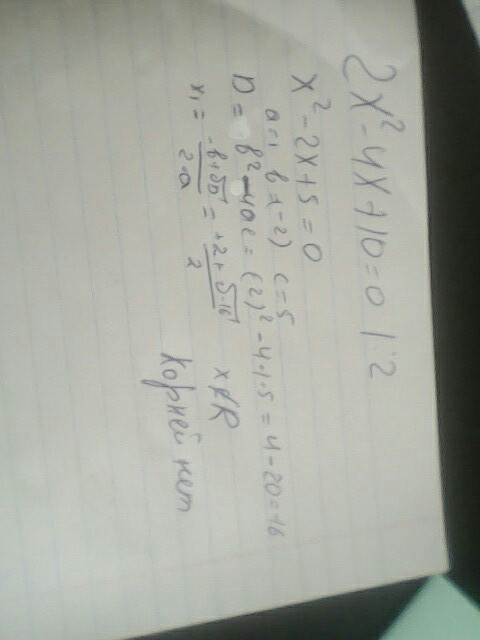 2x² - 4x + 10 = 0 | : 2
x² - 2x + 5 = 0
a = 1 b = (-2) c = 5
D = b² - 4ac = (2)² - 4·1·5 = 4 - 20 = 16
x₁ = (-b + √D) / (2·a) = (+2 + √-16) / 2 x ∉ R
Корней нет